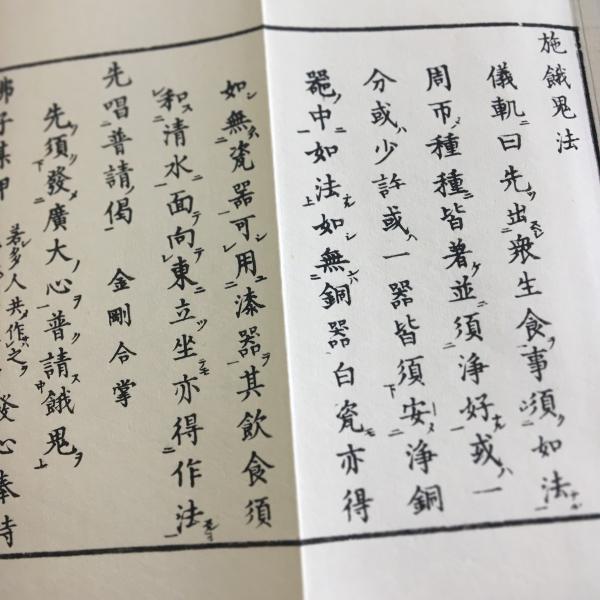 施餓鬼法
儀軌曰先出衆生食事須如法
周帀種種皆著並須淨好或一
分或少許或一器皆須安淨銅
器中如法如無銅器白瓷亦得
如無瓷器可用漆器其飲食須
和清水面向東立坐亦得作法
先唱普請偈 金剛合掌
先須發廣大心普請餓鬼
佛子某甲 若多人共作之 發心奉持